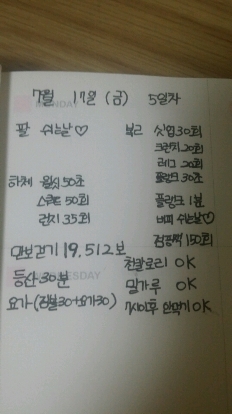 7월 17일 (금) 5일차
팔 쉬는날♡
복근 싯업30회
크런치 20회
레그 20회
플랭크 30초
하체 월싯 50초
스쿼트 50회
런지 35회
플랭크 1분
버피 쉬는날♡
점핑잭 150회
만보걷기 19,512보
등산 30분
천칼로리 OK
밀가루 OK
7시이후 안먹기 OK